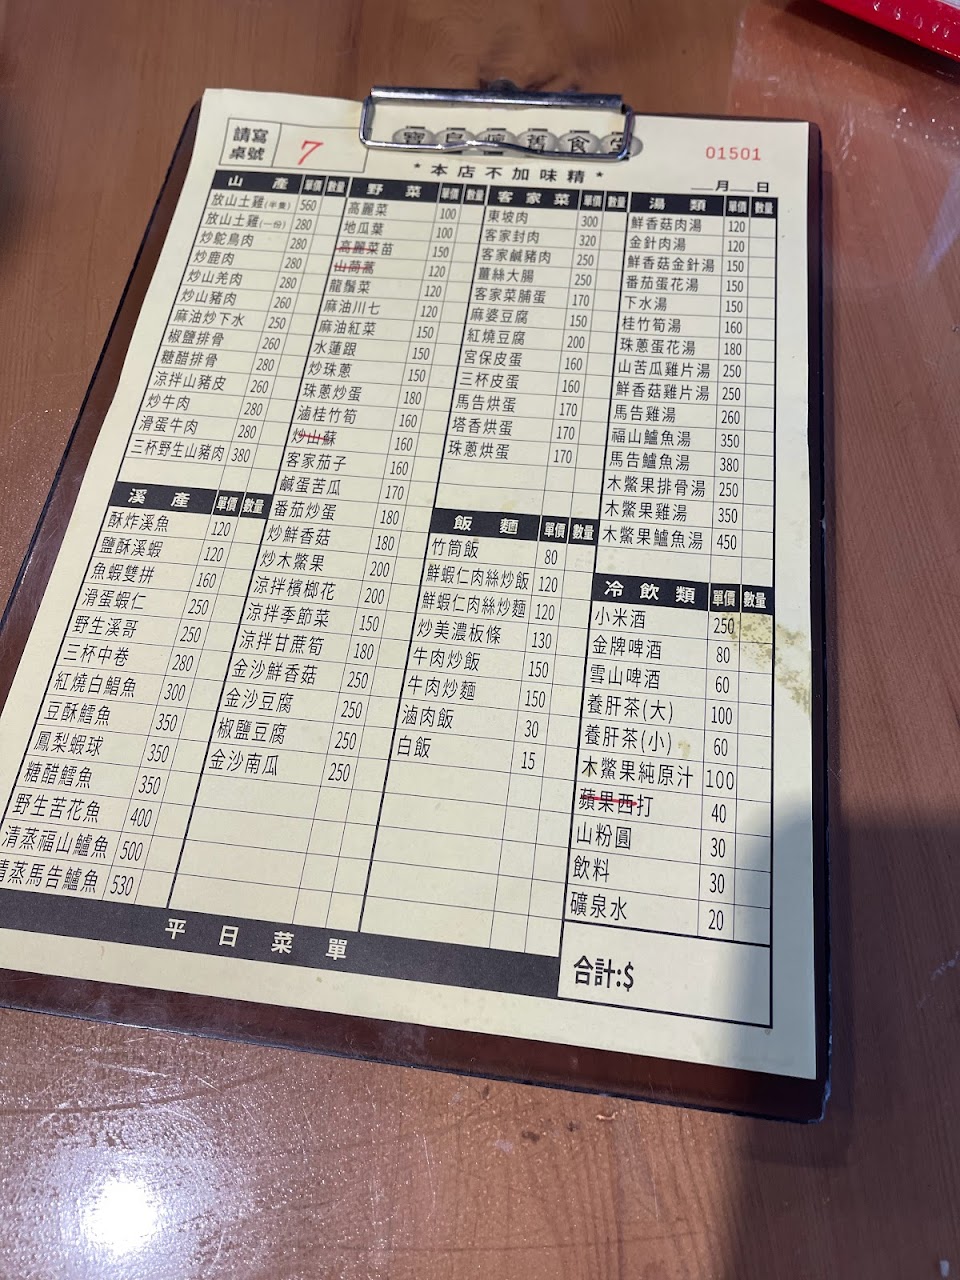 請寫
桌號
7
食
01501
*本店不加味精*
月 日
山產 單價 數量
放山土雞(半隻) 560
放山土雞(一份) 280
炒鴕鳥肉 280
炒鹿肉 280
炒山羌肉 280
炒山豬肉 260
麻油炒下水 250
椒鹽排骨 260
糖醋排骨 280
涼拌山豬皮 260
炒牛肉 280
滑蛋牛肉 280
三杯野生山豬肉 380
溪產 單價 數量
酥炸溪魚 120
鹽酥溪蝦 120
魚蝦雙拼 160
滑蛋蝦仁 250
野生溪哥 250
三杯中卷 280
紅燒白鯧魚 300
豆酥鱈魚 350
鳳梨蝦球 350
糖醋鱈魚 350
野生苦花魚 400
清蒸福山鱸魚 500
清蒸馬告鱸魚 530
野菜 單價 數量
高麗菜 100
地瓜葉 100
高麗菜苗 150
山茼蒿 120
龍鬚菜 120
麻油川七 120
麻油紅菜 150
水蓮跟 150
炒珠蔥 150
珠蔥炒蛋 180
滷桂竹筍 160
炒山蘇 160
客家茄子 160
鹹蛋苦瓜 170
番茄炒蛋 180
炒鮮香菇 180
炒木鱉果 200
涼拌檳榔花 200
涼拌季節菜 150
涼拌甘蔗筍 180
金沙鮮香菇 250
金沙豆腐 250
椒鹽豆腐 250
金沙南瓜 250
客家菜 單價 數量
東坡肉 300
客家封肉 320
客家鹹豬肉 250
薑絲大腸 250
客家菜脯蛋 170
麻婆豆腐 150
紅燒豆腐 200
宮保皮蛋 160
三杯皮蛋 160
馬告烘蛋 170
塔香烘蛋 170
珠蔥烘蛋 170
飯麵 單價 數量
竹筒飯 80
鮮蝦仁肉絲炒飯 120
鮮蝦仁肉絲炒麵 120
炒美濃板條 130
牛肉炒飯 150
牛肉炒麵 150
滷肉飯 30
白飯 15
湯類 單價 數量
鮮香菇肉湯 120
金針肉湯 120
鮮香菇金針湯 150
番茄蛋花湯 150
下水湯 150
桂竹筍湯 160
珠蔥蛋花湯 180
山苦瓜雞片湯 250
鮮香菇雞片湯 250
馬告雞湯 260
福山鱸魚湯 350
馬告鱸魚湯 380
木鱉果排骨湯 250
木鱉果雞湯 350
木鱉果鱸魚湯 450
冷飲類 單價 數量
小米酒 250
金牌啤酒 80
雪山啤酒 60
養肝茶(大) 100
養肝茶(小) 60
木鱉果純原汁 100
蘋果西打 40
山粉圓 30
飲料 30
礦泉水 20
平日菜單
合計:$